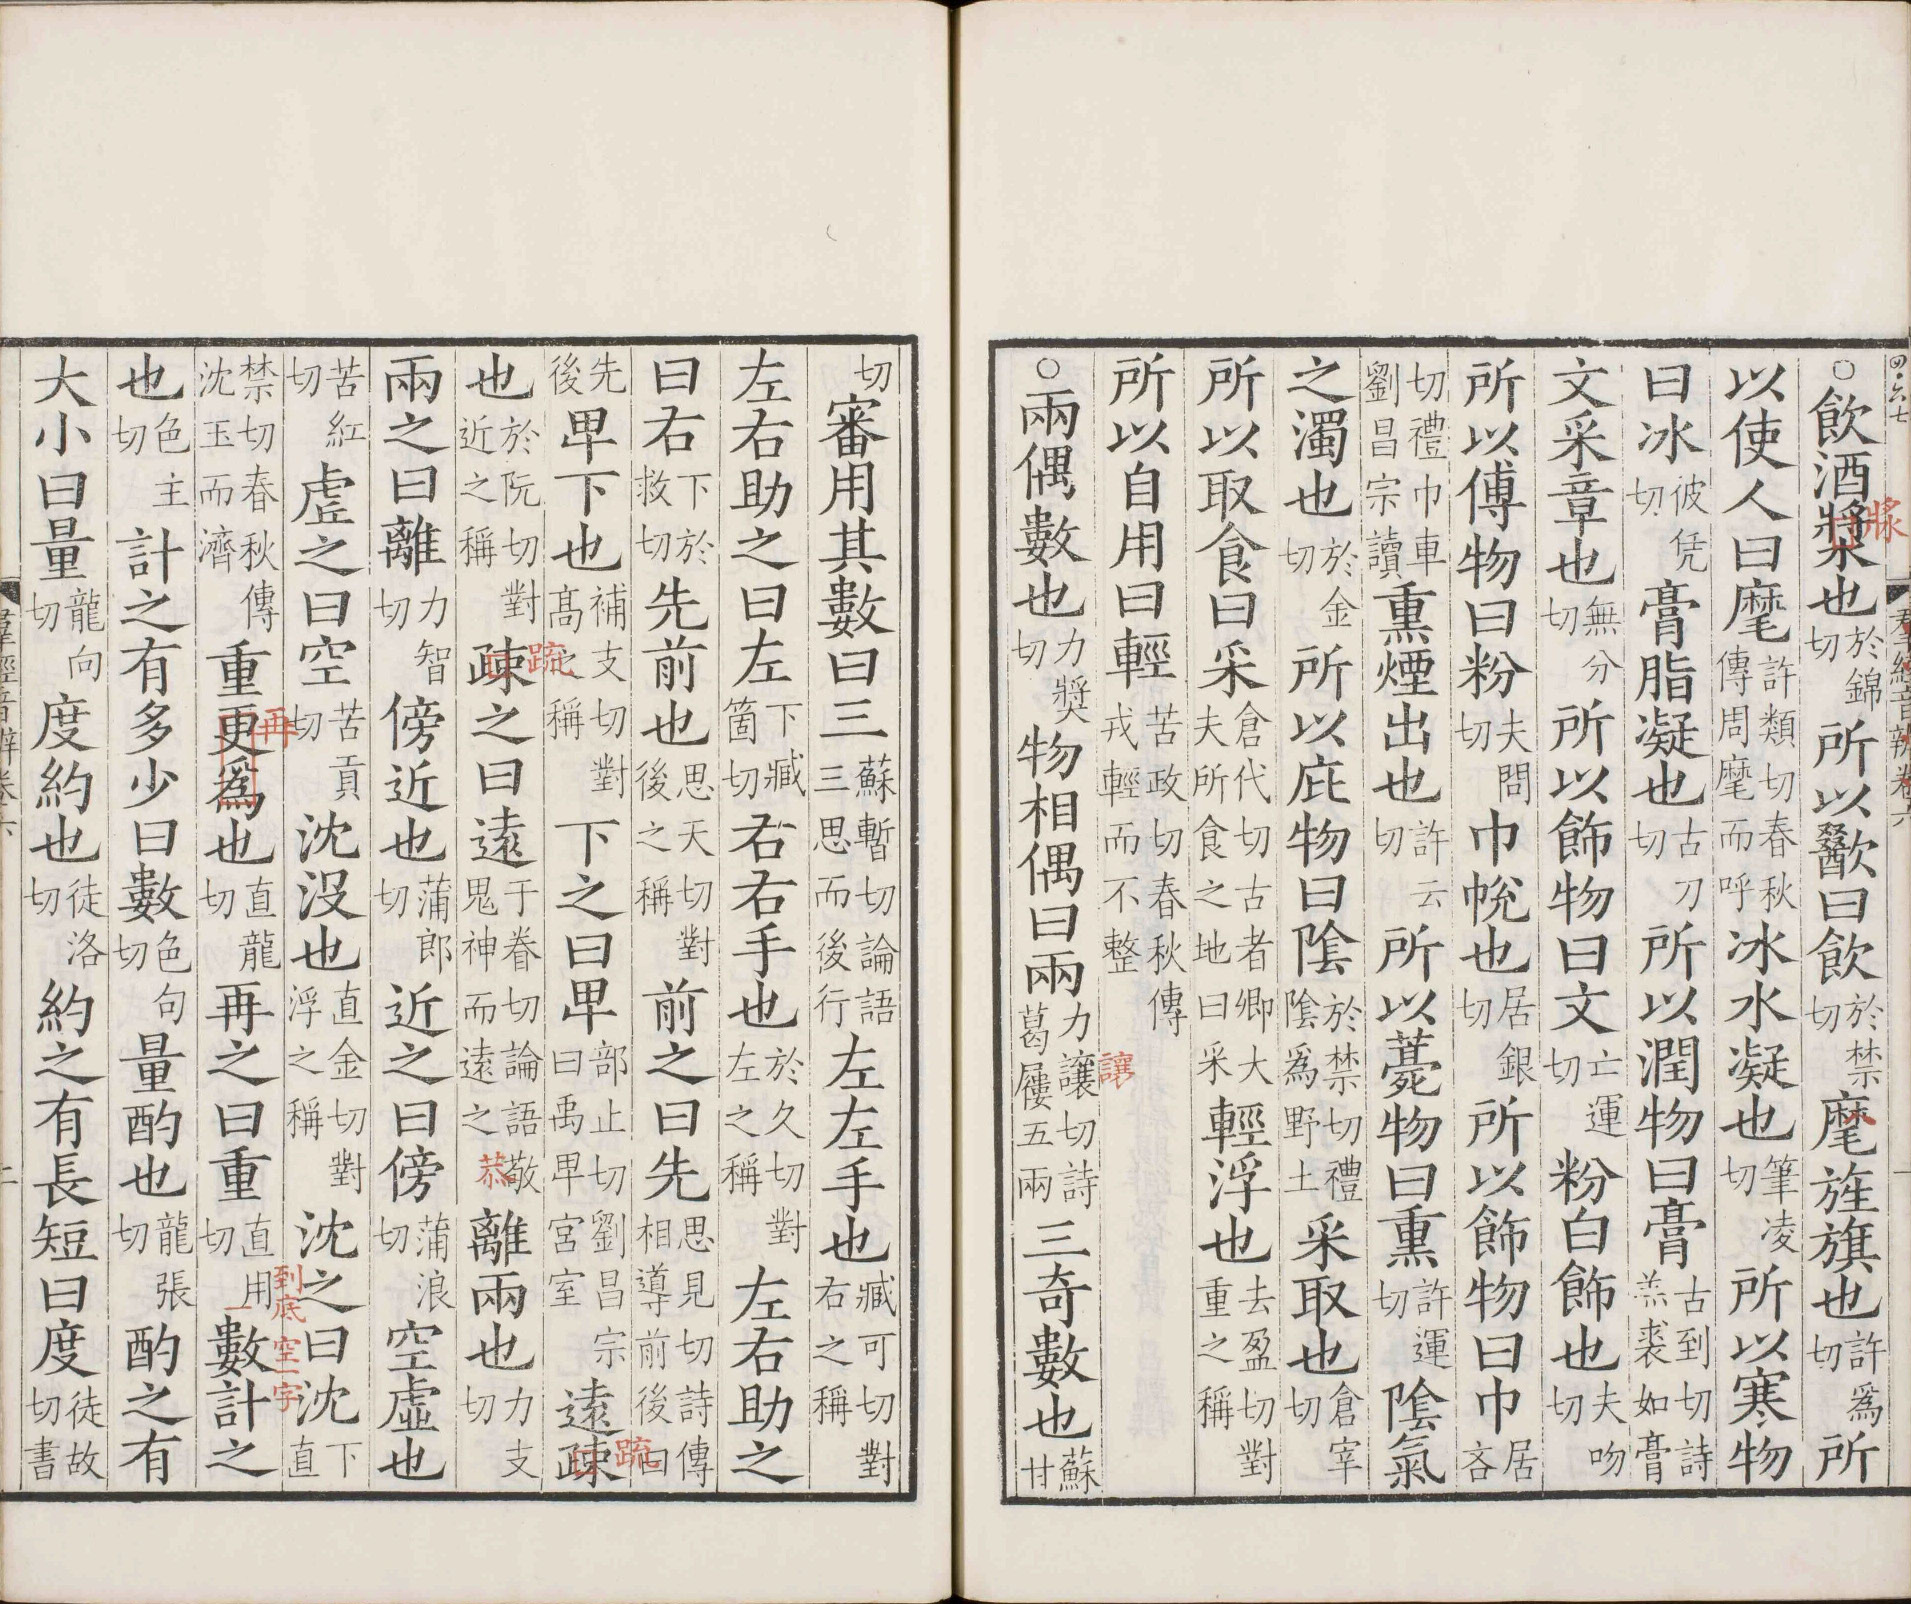 ○飲酒漿也於錦切所以歠曰飲於禁切麾旌旗也許爲切所
以使人曰麾許類切春秋傳周麾而呼冰水凝也筆凌切所以寒物
曰冰彼凭切膏脂凝也古刀切所以潤物曰膏古到切詩羔裘如膏
文采章也無分切所以飾物曰文亡運切粉白飾也夫吻切
所以傅物曰粉夫問切巾帨也居銀切所以飾物曰巾居吝
切禮巾車劉昌宗讀熏煙出也許云切所以薨物曰熏許運切陰氣
之濁也於金切所以庇物曰陰於禁切禮陰爲野土采取也倉宰切
所以取食曰采倉代切古者卿大夫所食之地曰采輕浮也去盈切對重之稱
所以自用曰輕苦政切春秋傳戎輕而不整
○兩偶數也力奬切物相偶曰兩力讓切詩葛屨五兩三奇數也蘇甘
切審用其數曰三蘇暫切論語三思而後行左左手也臧可切對右之稱
左右助之曰左下臧箇切右右手也於久切對左之稱左右助之
曰右下於救切先前也思天切對後之稱前之曰先思見切詩傳相導前後曰
先後卑下也補支切對高之稱下之曰卑部止切劉昌宗曰禹卑宮室遠疎
也於阮切對近之稱疎之曰遠于眷切論語敬鬼神而遠之離兩也力支切
兩之曰離力智切傍近也蒲郎切近之曰傍蒲浪切空虛也
苦紅切虛之曰空苦貢切沈沒也直金切對浮之稱沈之曰沈下直
禁切春秋傳沈玉而濟重更爲也直龍切再之曰重直用切數計之
也色主切計之有多少曰數色句切量酌也龍張切酌之有
大小曰量龍向切度約也徒洛切約之有長短曰度徒故切書
四·六七
羣經音辨卷六
一
羣經音辨卷六
二
漿
讓
疏
疏
恭
再
到底空一字